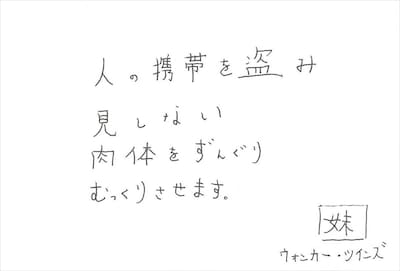 人の携帯を盗み
見しない
肉体をずんぐり
むっくりさせます。
妹
ウォンカー・ツインズ